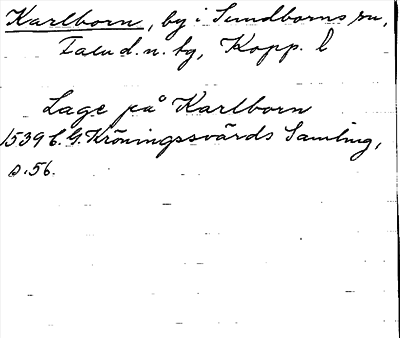 Karlborn, by i Sundborns sn,
Falu d.n. tg, Kopp. l
Lage på Karlborn
1539 C. G. Kröningssvärds Samling,
s. 56.